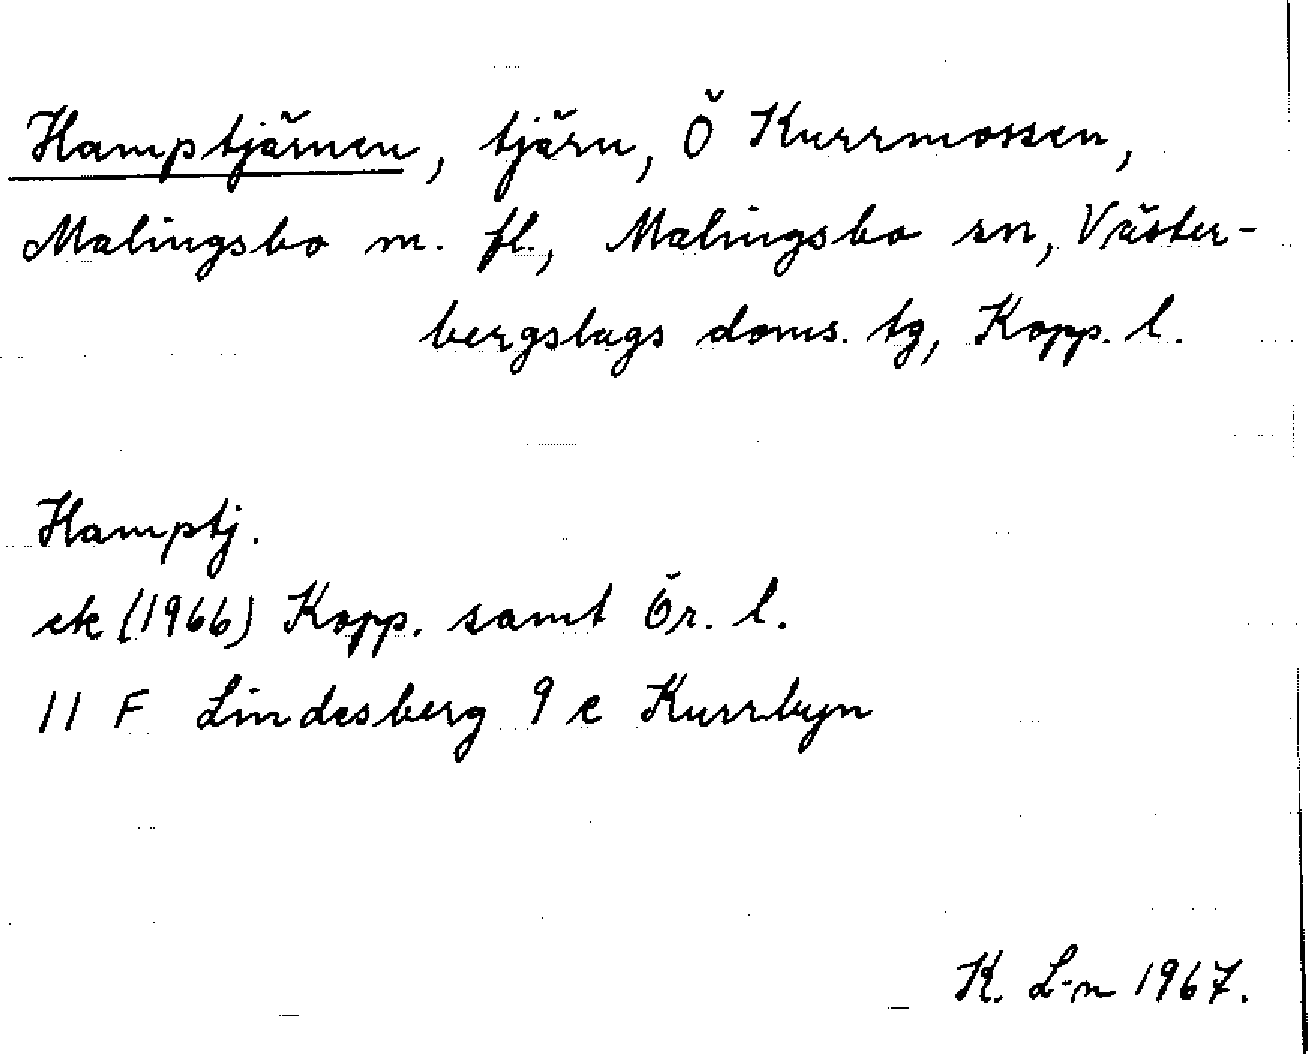 Hamptjärnen, tjärn, Ö Kurrmossen,
Malingsbo m. fl., Malingsbo sn, Väster-
bergslags doms. tg, Kopp. l.
Hamptj.
ek (1966) Kopp. samt Ör. l.
11 F Lindesberg 9 e Kurrbyn
K. L-n 1967.